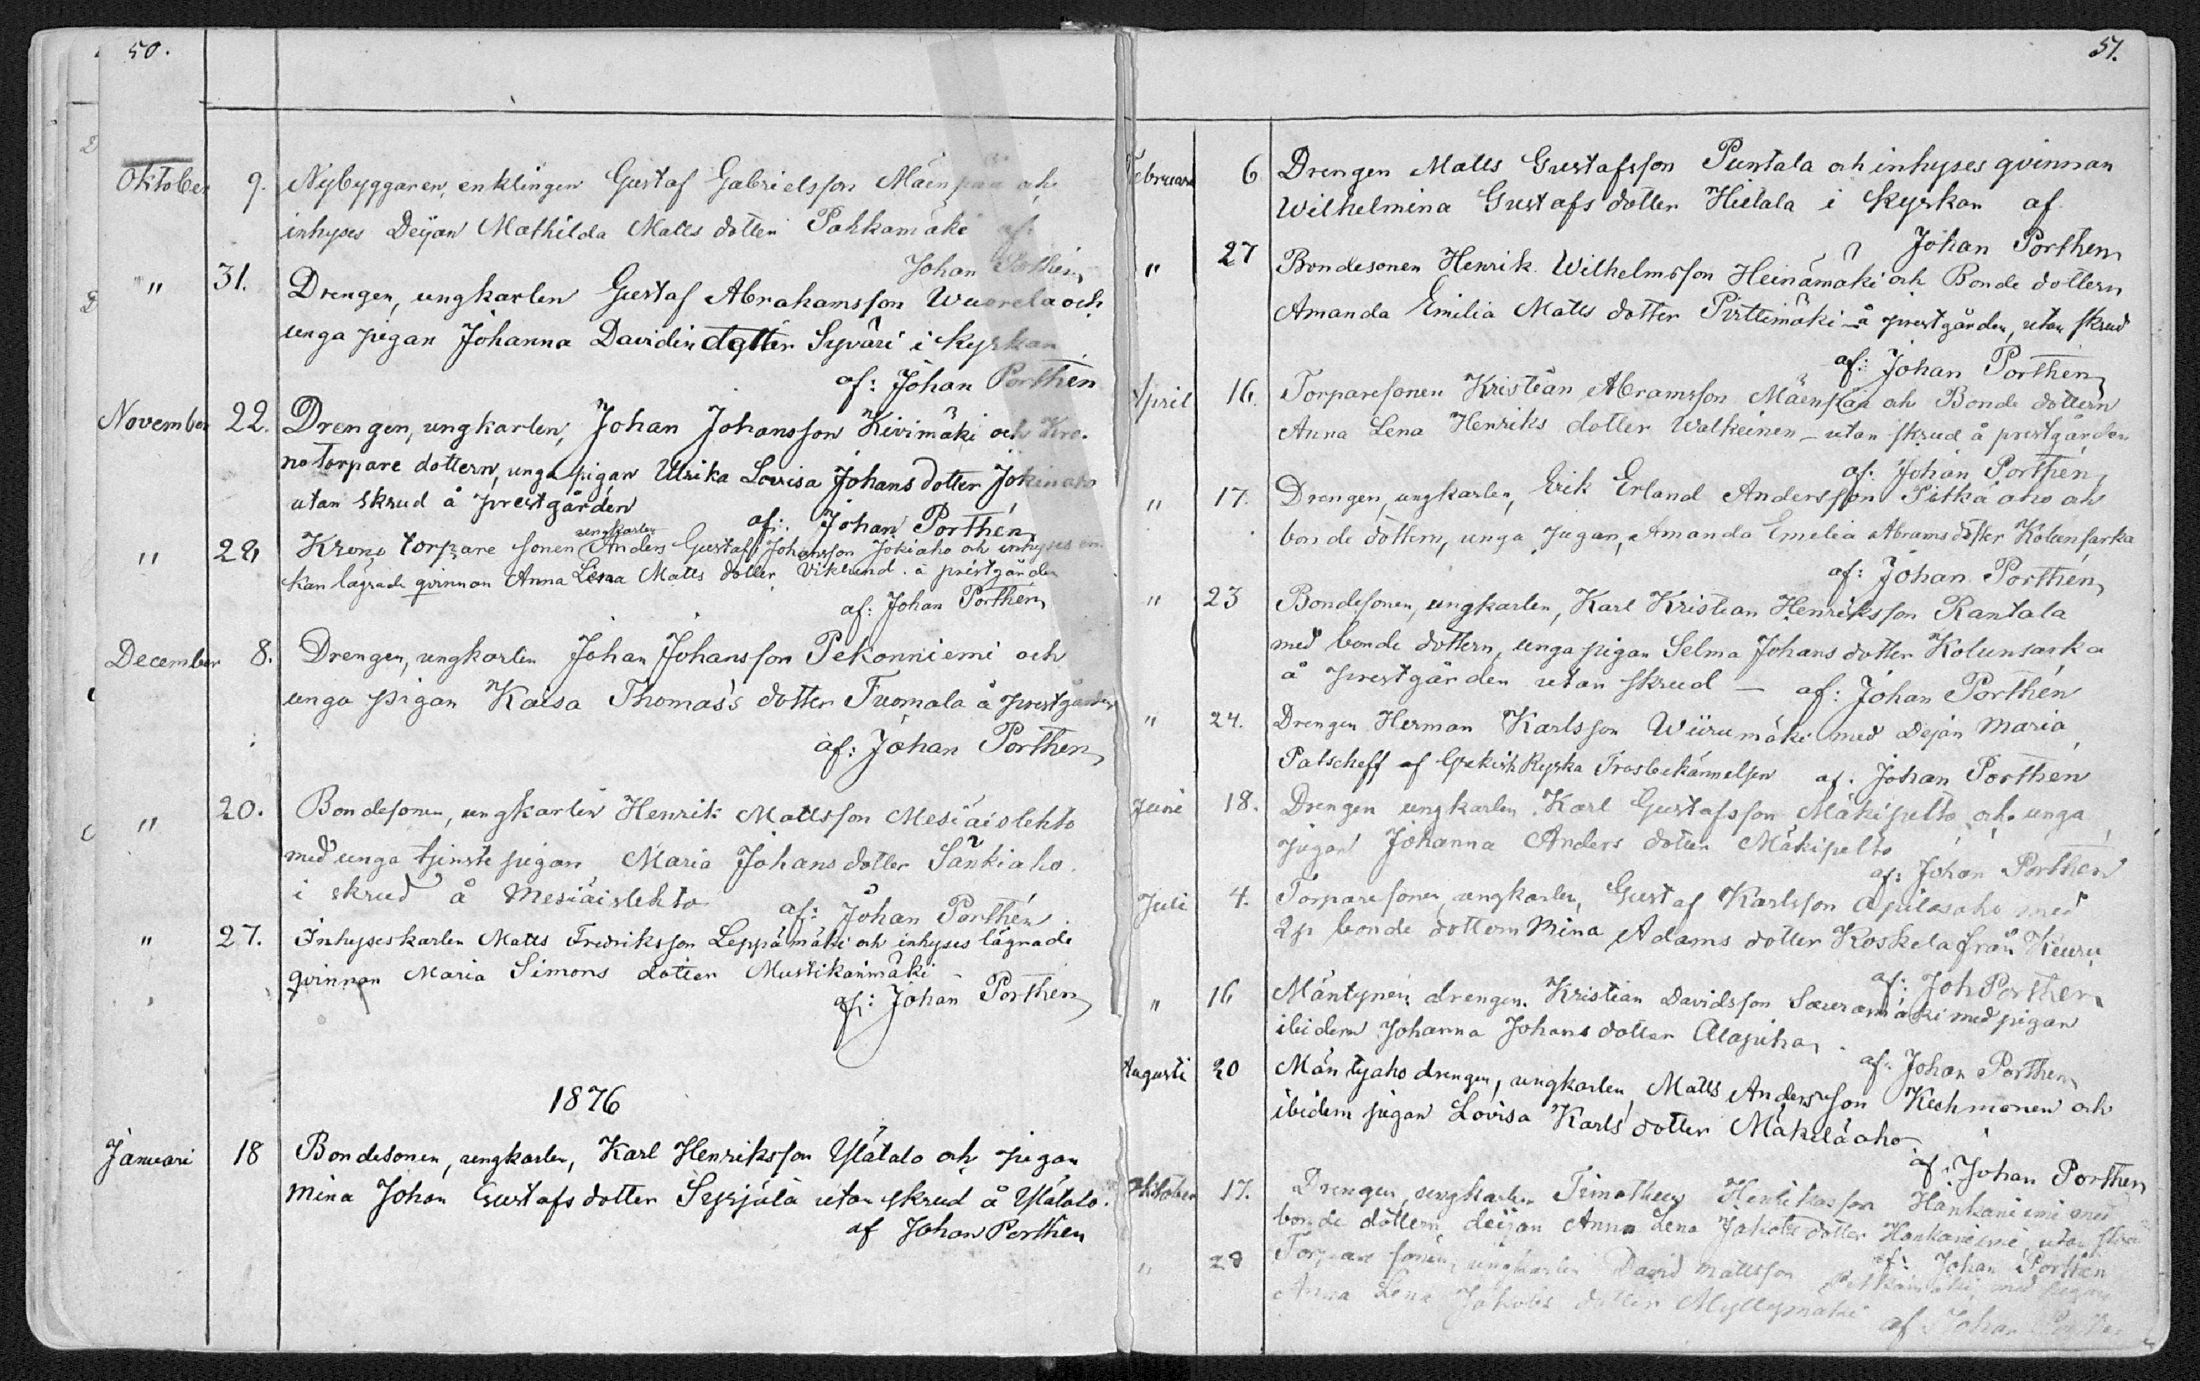 50.
Oktober 9. Nybyggaren, enklingen Gustaf Gabrielsson Mäenpää och
inhyses Dejan Mathilda Matts dotter Pahkamäki af:
Johan Porthén
" 31. Drengen, ungkarlen Gustaf Abrahamsson Wuorela och
unga pigan Johanna Davids dotter Syväri i kyrkan
af: Johan Porthén
November 22. Drengen, ungkarlen, Johan Johansson Kivimäki och Kro-
no torpare dottern, unga pigan Ulrika Lovisa Johans dotter Jokinaho
utan skrud å prestgården
af: Johan Porthén
ungkarlen
" 28 Krono torpare sonen Anders Gustaf Johansson Jokiaho och inhyses en-
kan lägrade qvinnan Anna Lena Matts dotter Viklund å prestgården
af: Johan Porthén
December 8. Drengen, ungkarlen Johan Johansson Pekonniemi och
unga pigan Kaisa Thomas's dotter Tuomala å prestgården
af: Johan Porthen
" 20. Bondesonen, ungkarlen Henrik Mattsson Mesiäislehto
med unga tjenste pigan Maria Johans dotter Sänkiaho
i skrud å Mesiäislehto
af: Johan Porthén
" 27. Inhyseskarlen Matts Fredriksson Leppämäki och inhyses lägrade
qvinnan Maria Simons dotter Mustikkamäki
af: Johan Porthen
1876
Januari 18 Bondesonen, ungkarlen, Karl Henriksson Ylätalo och pigan
Mina Johan Gustafs dotter Syrjälä utan skrud å Ylätalo.
af Johan Porthen
51.
Februari 6 Drengen Matts Gustafsson Puntala och inhyses qvinnan
Wilhelmina Gustafs dotter Hietala i kyrkan af
Johan Porthen
" 27 Bondesonen Henrik Wilhelmsson Heinämäki och Bonde dottern
Amanda Emilia Matts dotter Pirttimäki å prestgården, utan skrud
af: Johan Porthen
April 16. Torparesonen Kristian Abramsson Mäenpää och Bonde dottern
Anna Lena Henriks dotter Walkeinen - utan skrud å prestgården
af: Johan Porthén
" 17. Drengen, ungkarlen, Erik Erland Andersson Pitkäaho och
bonde dottern, unga pigan, Amanda Emelia Abrams dotter Kolunsarka
af: Johan Porthén
" 23 Bondesonen, ungkarlen, Karl Kristian Henriksson Rantala
med bonde dottern, unga pigan Selma Johans dotter Kolunsarka
å prestgården utan skrud - af: Johan Porthén
" 24. Drengen Herman Karlsson Wiirumäki med Dejan Maria
Patscheff af Grekisk Ryska Trosbekännelsen af: Johan Porthen
Juni 18. Drengen ungkarlen Karl Gustafsson Mäkipelto och unga
pigan Johanna Anders dotter Mäkipelto
af: Johan Porthen
Juli 4. Torparesonen, ungkarlen, Gustaf Karlsson Apilasaho med
bonde dottern Mina Adams dotter Koskela från Keuru
af: Joh Porthen
" 16 Mäntynen drengen Kristian Davidsson Sauramäki med pigan
ibidem Johanna Johans dotter Alapiha
af: Johan Porthen
Augusti 20 Mäntyaho drengen, ungkarlen, Matts Andersson Kechmonen och
ibidem pigan Lovisa Karls dotter Mäkeläaho
af: Johan Porthen
Oktober 17. Drengen, ungkarlen Timotheus Henriksson Hankaniemi med
bonde dottern deijan Anna Lena Jakobs dotter Hankaniemi, utan skrud
af: Johan Porthen
" 28 Torpare sonen, ungkarlen David Mattsson med pigan
Anna Lena Jakobs dotter Myllymäki
af Johan Porthen